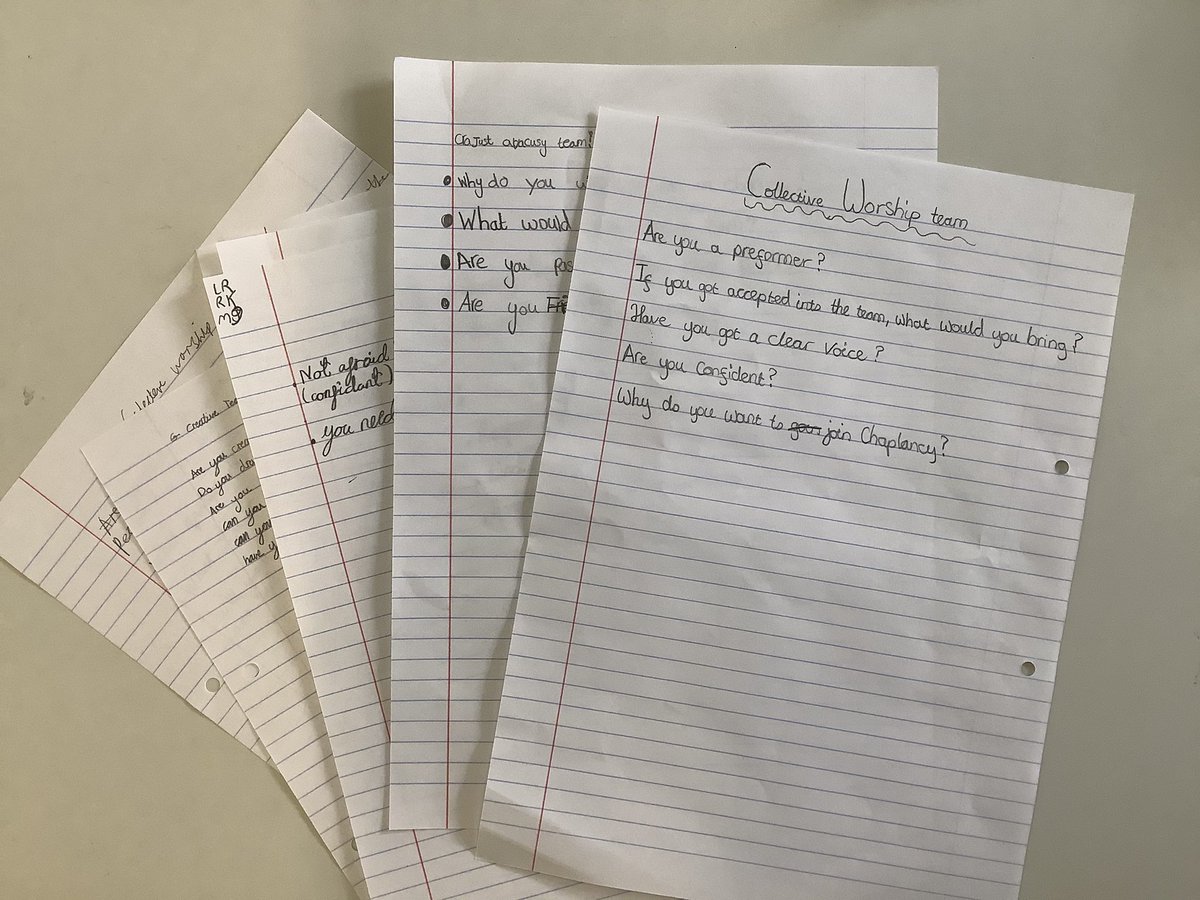 Collective Worship team
Are you a preformer?
If you got accepted into the team, what would you bring?
Have you got a clear voice?
Are you confident?
Why do you want to join Chaplancy?
team?
Why do you
What would
Are you
Are you
LR
RK
Not afraid
(confidant)
you need
Creative
Are you
Do you
Are you
can you
can you
have
worship
Are